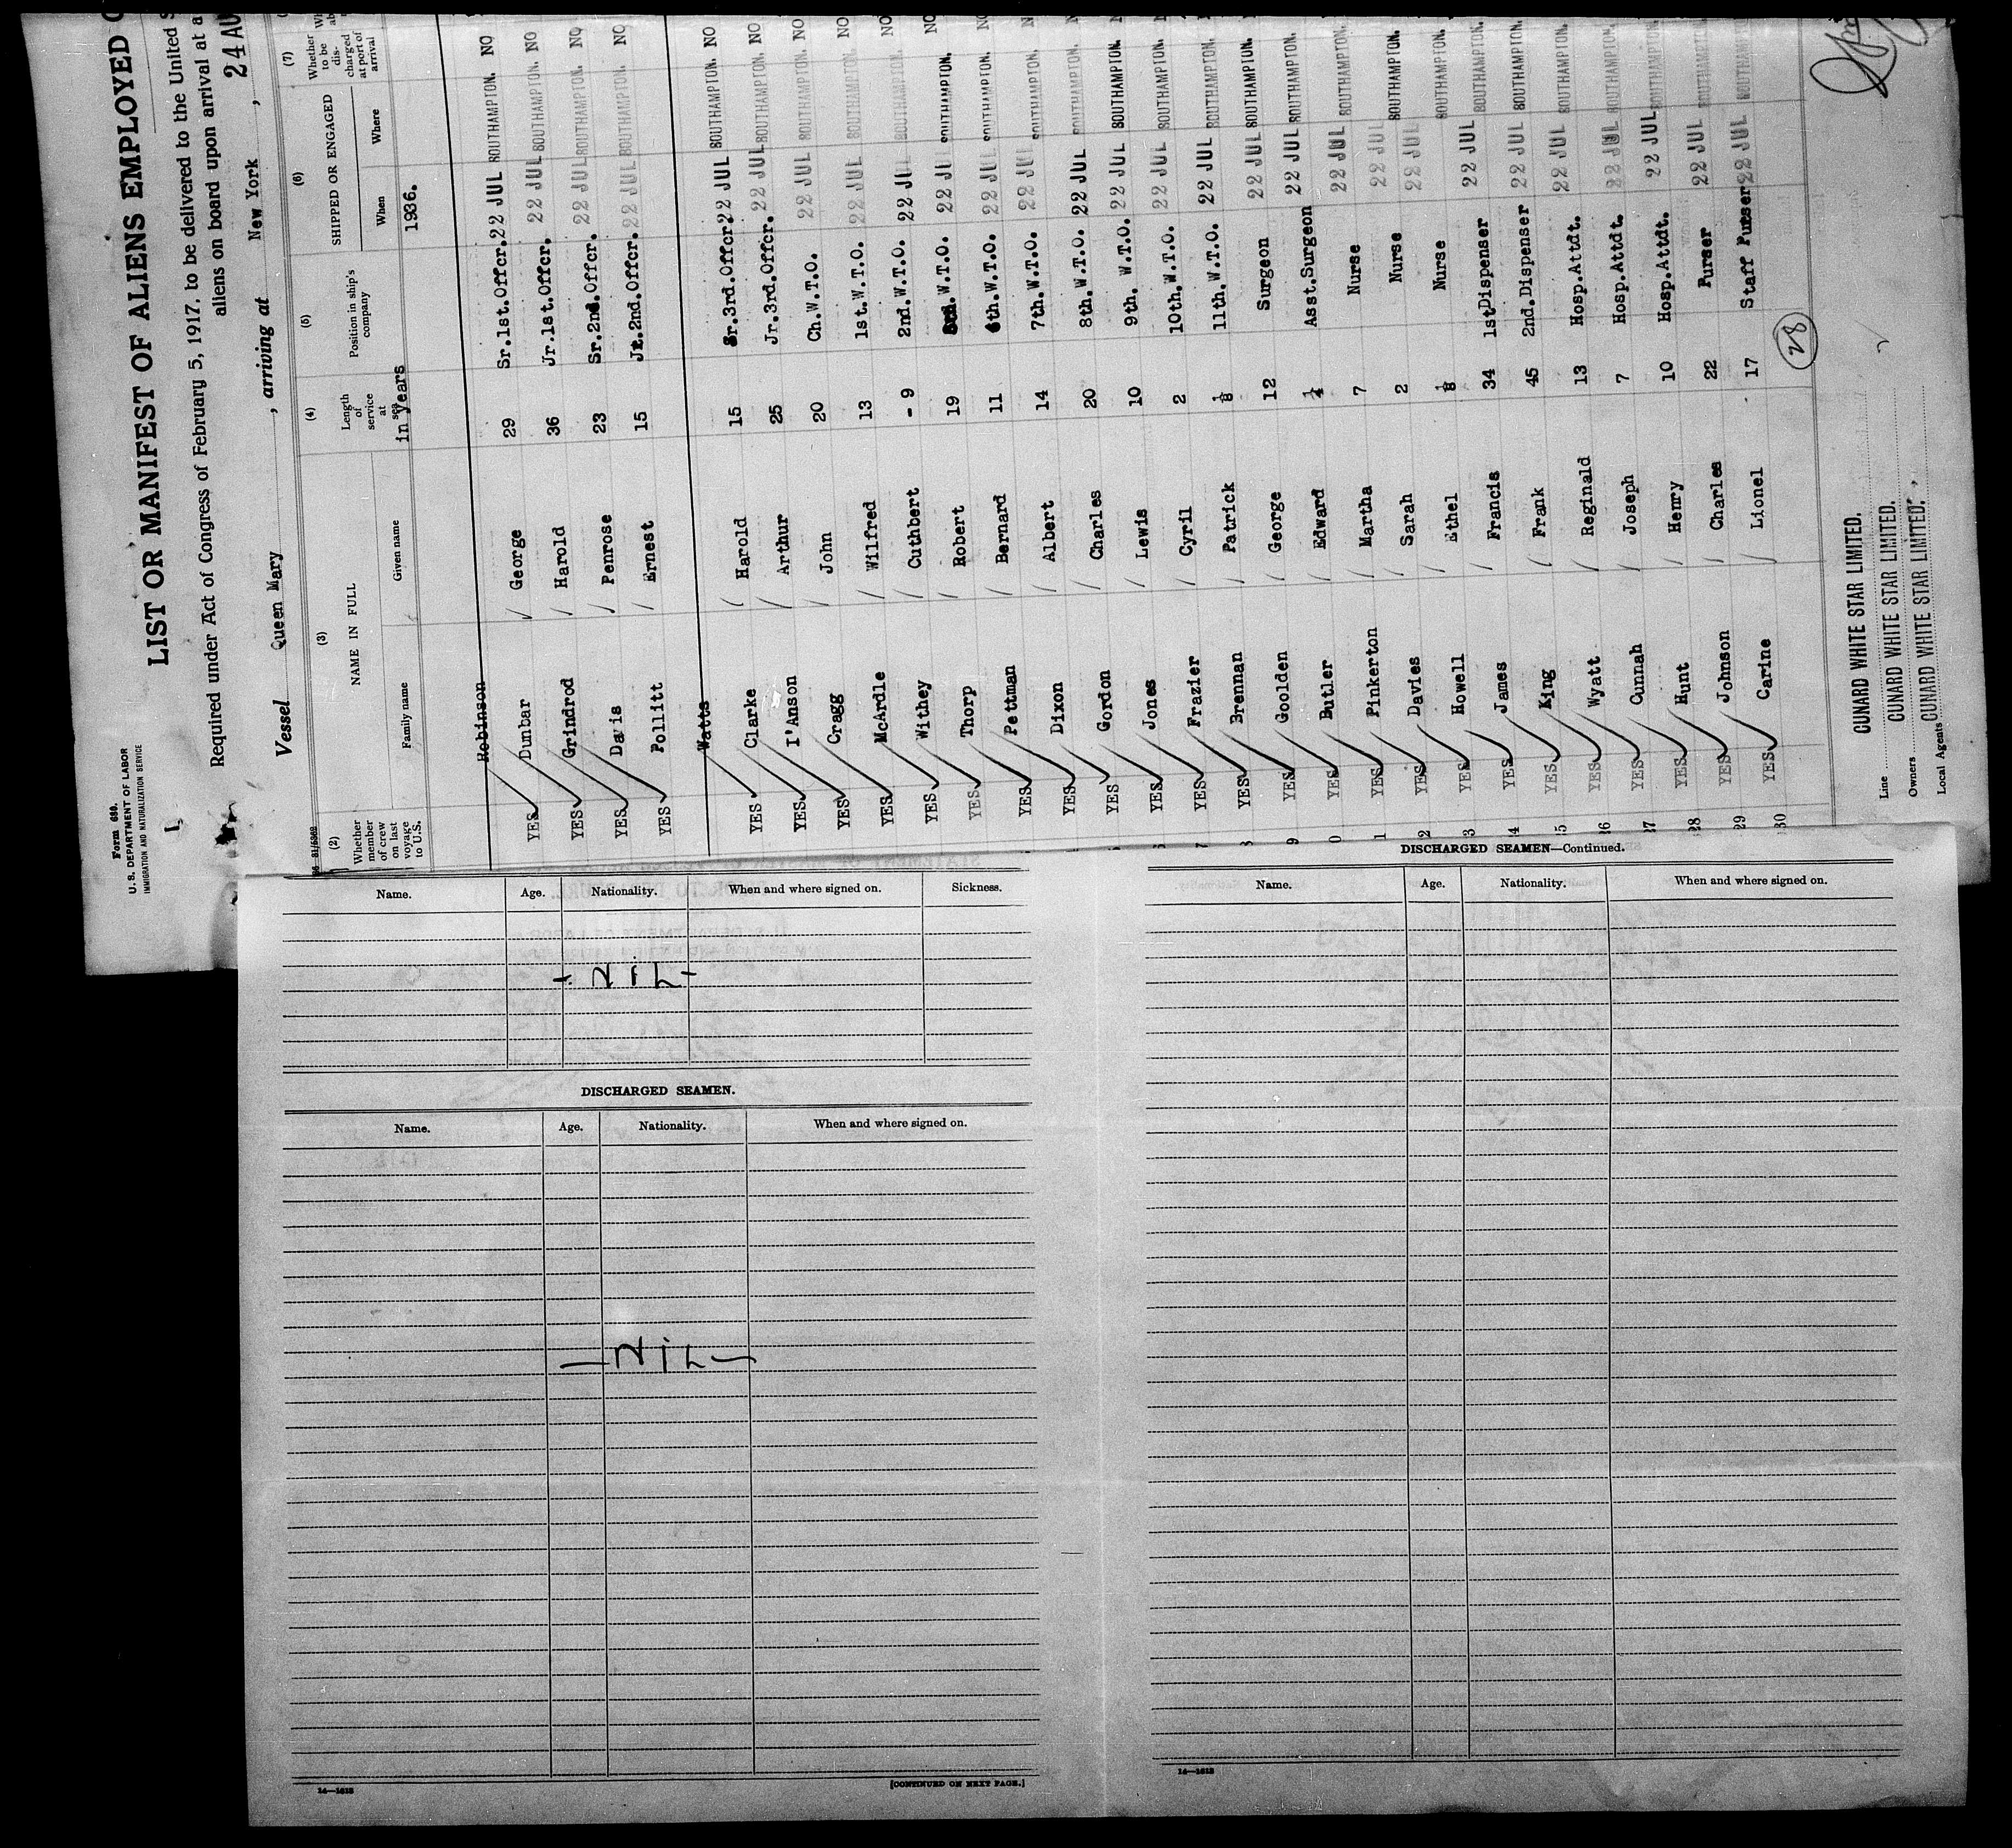 Form 680.
U. S. DEPARTMENT OF LABOR
IMMIGRATION AND NATURALIZATION SERVICE
LIST OR MANIFEST OF ALIENS EMPLOYED
Required under Act of Congress of February 5, 1917, to be delivered to the United
aliens on board upon arrival at a
Vessel Queen Mary , arriving at New York , 24 AU
(2) (3) (4) (5) (6) (7)
Whether member of crew on last voyage to U.S. NAME IN FULL Family name Given name Length of service at sea in Years Position in ship's company SHIPPED OR ENGAGED When Where Whether to be discharged at port of arrival
1936.
Robinson
YES Dunbar George 29 Sr.1st.Offcr. 22 JUL SOUTHAMPTON. NO
YES Grindrod Harold 36 Jr.1st.Offcr. 22 JUL SOUTHAMPTON. NO
YES Davis Penrose 23 Sr.2nd.Offcr. 22 JUL SOUTHAMPTON. NO
YES Pollitt Ernest 15 Jr.2nd.Offcr. 22 JUL SOUTHAMPTON. NO
Watts
YES Clarke Harold 15 Sr.3rd.Offcr. 22 JUL SOUTHAMPTON. NO
YES I'Anson Arthur 25 Jr.3rd.Offcr. 22 JUL SOUTHAMPTON. NO
YES Cragg John 20 Ch.W.T.O. 22 JUL SOUTHAMPTON. NO
YES McArdle Wilfred 13 1st.W.T.O. 22 JUL SOUTHAMPTON. NO
YES Withey Cuthbert - 9 2nd.W.T.O. 22 JUL SOUTHAMPTON. NO
YES Thorp Robert 19 W.T.O. 22 JUL SOUTHAMPTON. NO
YES Pettman Bernard 11 6th.W.T.O. 22 JUL SOUTHAMPTON.
YES Dixon Albert 14 7th.W.T.O. 22 JUL SOUTHAMPTON.
YES Gordon Charles 20 8th.W.T.O. 22 JUL SOUTHAMPTON.
YES Jones Lewis 10 9th. W.T.O. 22 JUL SOUTHAMPTON.
YES Frazier Cyril 2 10th.W.T.O. 22 JUL SOUTHAMPTON.
YES Brennan Patrick 1/8 11th.W.T.O. 22 JUL SOUTHAMPTON.
YES Goolden George 12 Surgeon 22 JUL SOUTHAMPTON.
YES Butler Edward 1/4 Asst.Surgeon 22 JUL SOUTHAMPTON.
YES Pinkerton Martha 7 Nurse 22 JUL SOUTHAMPTON.
YES Davies Sarah 2 Nurse 22 JUL SOUTHAMPTON.
YES Howell Ethel 1/8 Nurse 22 JUL SOUTHAMPTON.
YES James Francis 34 1stDispenser 22 JUL SOUTHAMPTON.
YES King Frank 45 2nd.Dispenser 22 JUL SOUTHAMPTON.
YES Wyatt Reginald 13 Hosp.Attdt. 22 JUL SOUTHAMPTON.
YES Cunnah Joseph 7 Hosp.Attdt. 22 JUL SOUTHAMPTON.
YES Hunt Henry 10 Hosp.Attdt. 22 JUL SOUTHAMPTON.
YES Johnson Charles 22 Purser 22 JUL SOUTHAMPTON.
YES Carine Lionel 17 Staff Purser 22 JUL SOUTHAMPTON.
28
Line CUNARD WHITE STAR LIMITED.
Owners CUNARD WHITE STAR LIMITED.
Local Agents CUNARD WHITE STAR LIMITED.
Name. Age. Nationality. When and where signed on. Sickness.
- NIL -
DISCHARGED SEAMEN.
Name. Age. Nationality. When and where signed on.
— NIL —
14—1618
[CONTINUED ON NEXT PAGE.]
DISCHARGED SEAMEN—Continued.
Name. Age. Nationality. When and where signed on.
14—1618